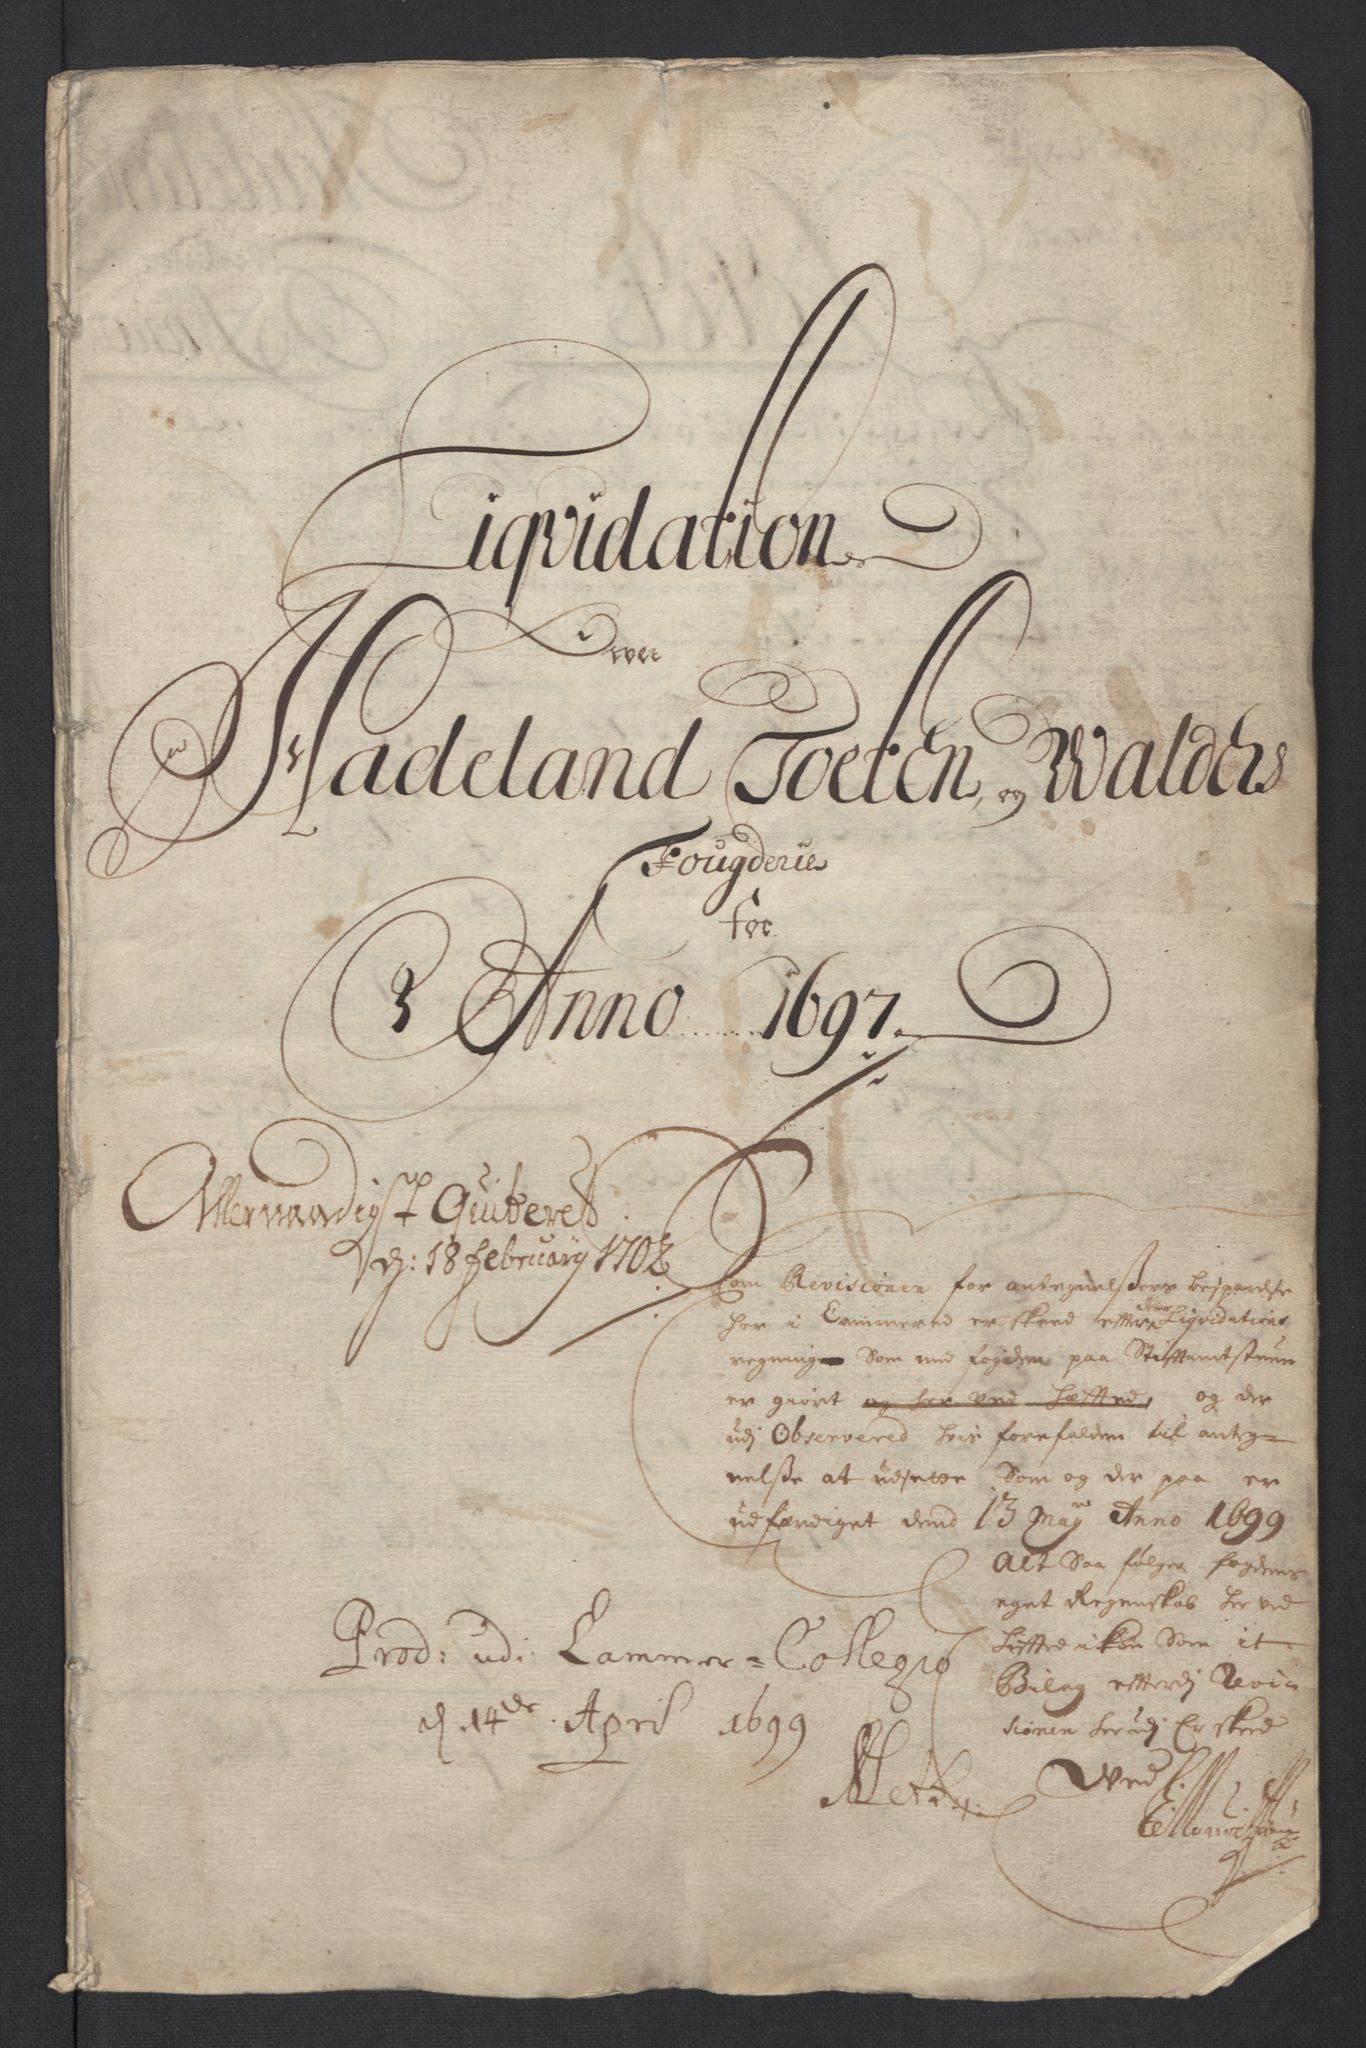 Liqvidation
Over
Hadeland Toeten og Walders
Fougderie
for
Anno 1697.
Allernaadigst Quitteret
d: 18 february 1702
Som Revisionen for antegnelsers bespardse
her i Cammered er skeed efter den Liqvidations
regning Som med fogden paa Stiftamtstuen
er giort og her ved heffted, og der
udj Observered hvis forefalden til anteg=
nelse at udsette Som og der paa er
udfærdiget dend 13 May Anno 1699
Alt Saa følger fogdens
eget Regenskab her ved
heffted icke Som it
Bilag efterdj Revi
sionen her udj Er skeed
Ved
Prod: udi Cammer=Collegio
d 14de April 1699